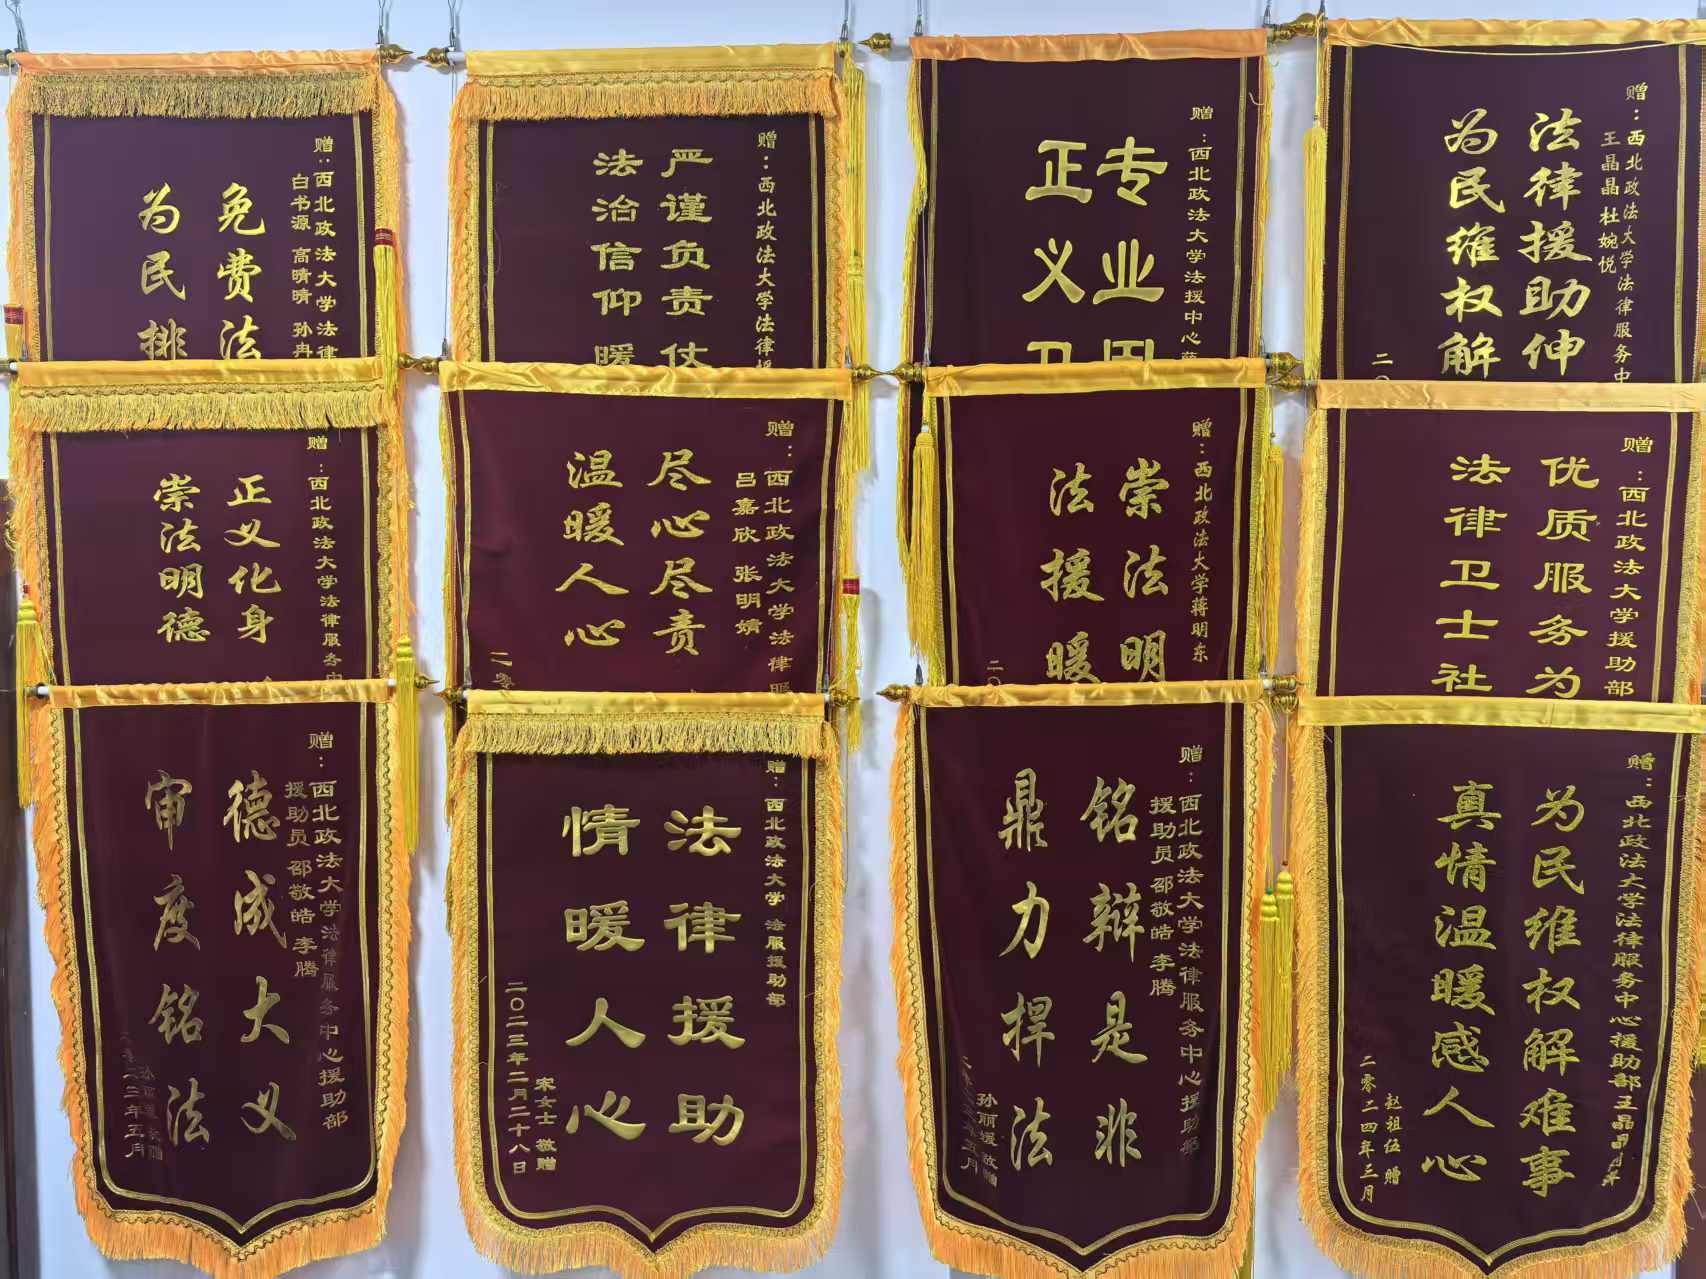 赠:西北政法大学法律
白书源 高晴晴 孙冉
免费法
为民排
赠:西北政法大学法律援
严谨负责仗
法治信仰暖
赠:西北政法大学法援中心
专业
正义卫
赠:西北政法大学法律服务中
王晶晶 杜婉悦
法律援助伸
为民维权解
二〇
赠:西北政法大学法律服务中
正义化身
崇法明德
赠:西北政法大学法律服
吕嘉欣 张明婧
尽心尽责
温暖人心
二零
赠:西北政法大学蒋明东
崇法明
法援暖
二〇
赠:西北政法大学援助部
优质服务为
法律卫士社
赠:西北政法大学法律服务中心援助部
援助员 邵敬皓 李腾
德成大义
审度铭法
三年五月
赠:西北政法大学 法服援助部
法律援助
情暖人心
宋女士 敬赠
二〇二三年二月二十八日
赠:西北政法大学法律服务中心援助部
援助员 邵敬皓 李腾
铭辩是非
鼎力捍法
孙丽媛 敬赠
赠:西北政法大学法律服务中心援助部王晶晶
为民维权解难事
真情温暖感人心
赵祖伍 赠
二零二四年三月